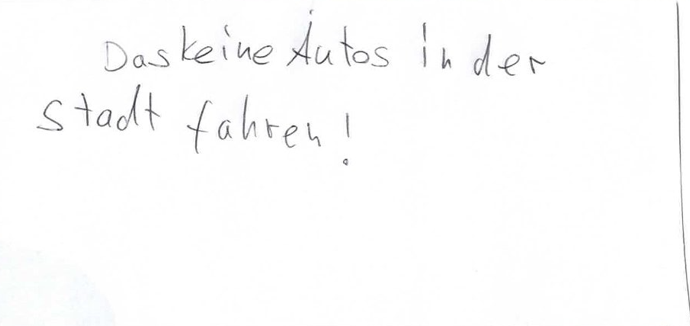 Das keine Autos in der
Stadt fahren!